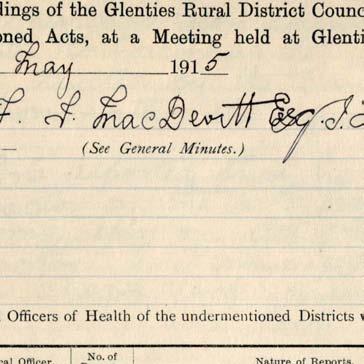 dings of the Glenties Rural District Counc
oned Acts, at a Meeting held at Glenti
May 1915
F. J. MacDevitt Esq. J.
(See General Minutes.)
Officers of Health of the undermentioned Districts w
cal Officer. No. of Nature of Reports.